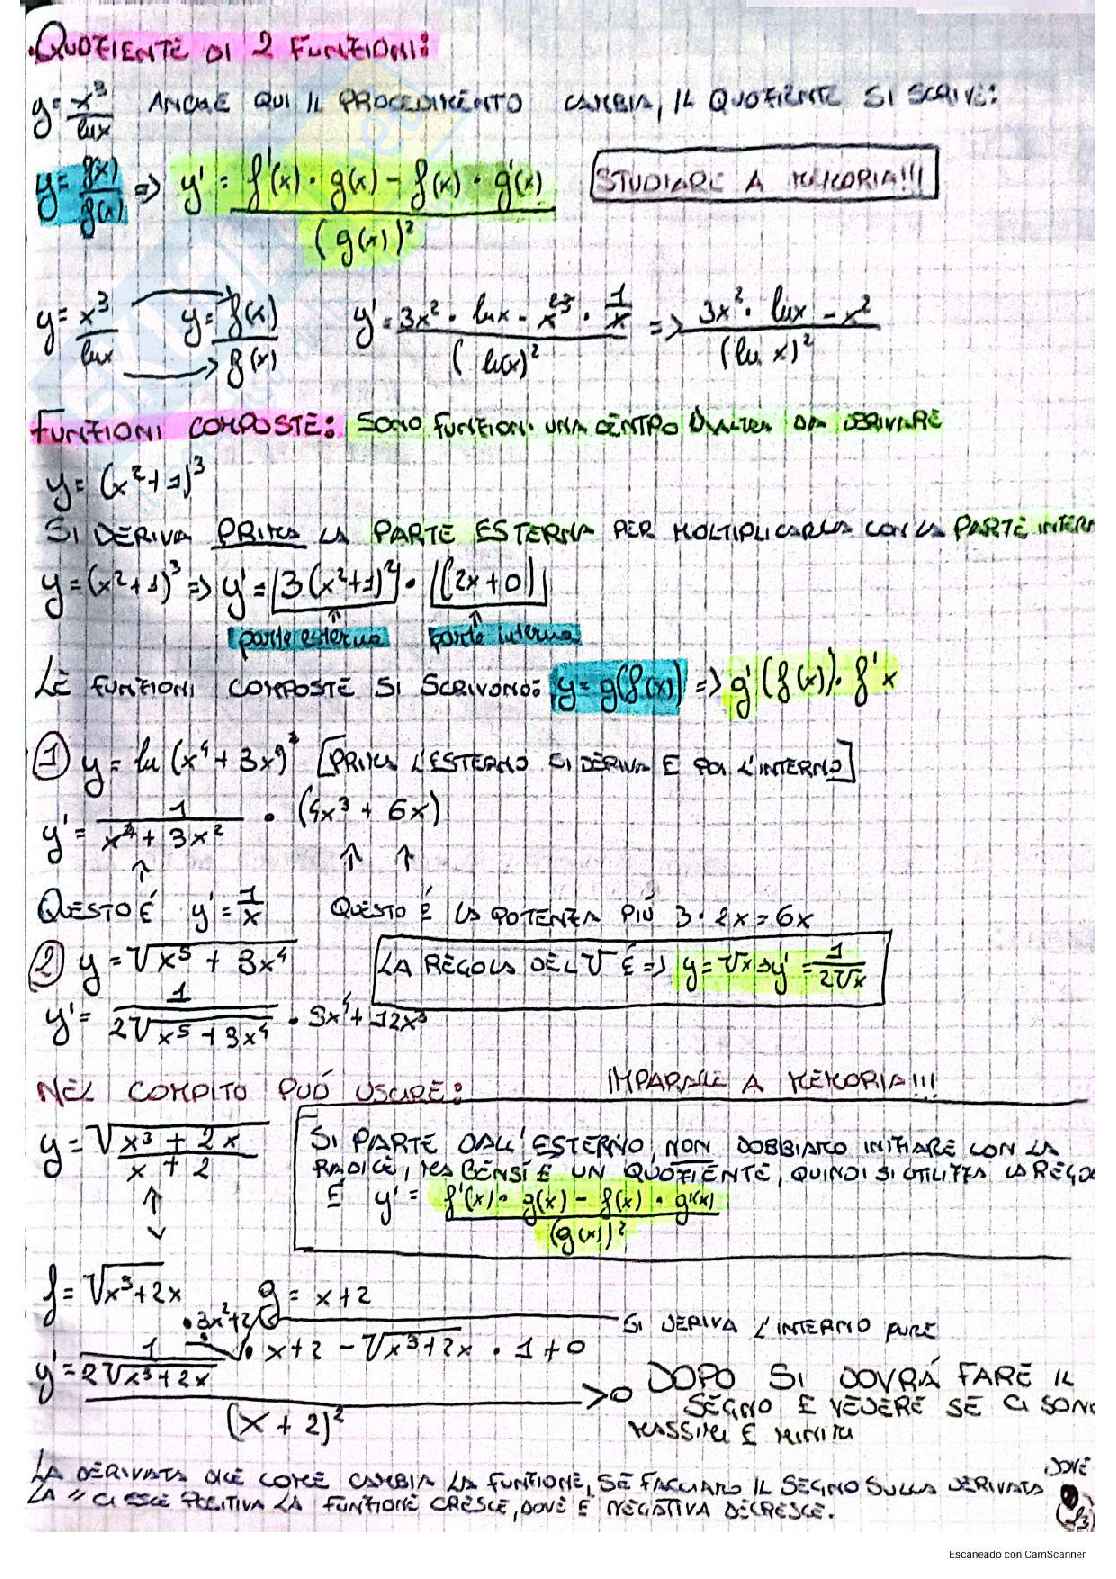 .QUOZIENTE DI 2 FUNZIONI:
y = x³/lnx ANCHE QUI IL PROCEDIMENTO CAMBIA, IL QUOZIENTE SI SCRIVE:
y = f(x)/g(x) => y' = f'(x) · g(x) - f(x) · g'(x) / (g(x))² STUDIARE A MEMORIA!!!
y = x³/lnx y = f(x)/g(x) y' = 3x² · lnx - x³ · 1/x / (ln(x))² => 3x² · lnx - x² / (ln x)²
FUNZIONI COMPOSTE: SONO FUNZIONI UNA DENTRO L'ALTRA DA DERIVARE
y = (x²+1)³
SI DERIVA PRIMA LA PARTE ESTERNA PER MOLTIPLICARLA CON LA PARTE INTERN
y = (x²+1)³ => y' = 3(x²+1)² · (2x+0)
parte esterna parte interna
LE FUNZIONI COMPOSTE SI SCRIVONO: y = g(f(x)) => g'(f(x)) · f'x
① y = ln(x⁴ + 3x²) [PRIMA L'ESTERNO SI DERIVA E POI L'INTERNO]
y' = 1/x⁴ + 3x² · (4x³ + 6x)
QUESTO É y' = 1/x QUESTO É LA POTENZA PIÚ 3 · 2x = 6x
② y = √x⁵ + 3x⁴ LA REGOLA DEL √ É => y = √x => y' = 1/2√x
y' = 1/2√x⁵ + 3x⁴ · 5x⁴ + 12x³
NEL COMPITO PUÓ USCIRE: IMPARARE A MEMORIA!!!
y = √x³ + 2x / x + 2 SI PARTE DALL'ESTERNO, NON DOBBIAMO INIZIARE CON LA
RADICE, MA BENSÍ É UN QUOZIENTE, QUINDI SI UTILIZZA LA REGO
É y' = f'(x) · g(x) - f(x) · g'(x) / (g(x))²
f = √x³+2x g = x+2
· 3x²+2 SI DERIVA L'INTERNO PURE
y' = 1/2√x³+2x · x+2 - √x³+2x · 1+0 / (x+2)² >0 DOPO SI DOVRÁ FARE IL
SEGNO E VEDERE SE CI SONO
MASSIMI E MINIMI
LA DERIVATA DICE COME CAMBIA LA FUNZIONE, SE FACCIAMO IL SEGNO SULLA DERIVATA DOVE
LA " CI ESCE POSITIVA LA FUNZIONE CRESCE, DOVE É NEGATIVA DECRESCE.
Escaneado con CamScanner